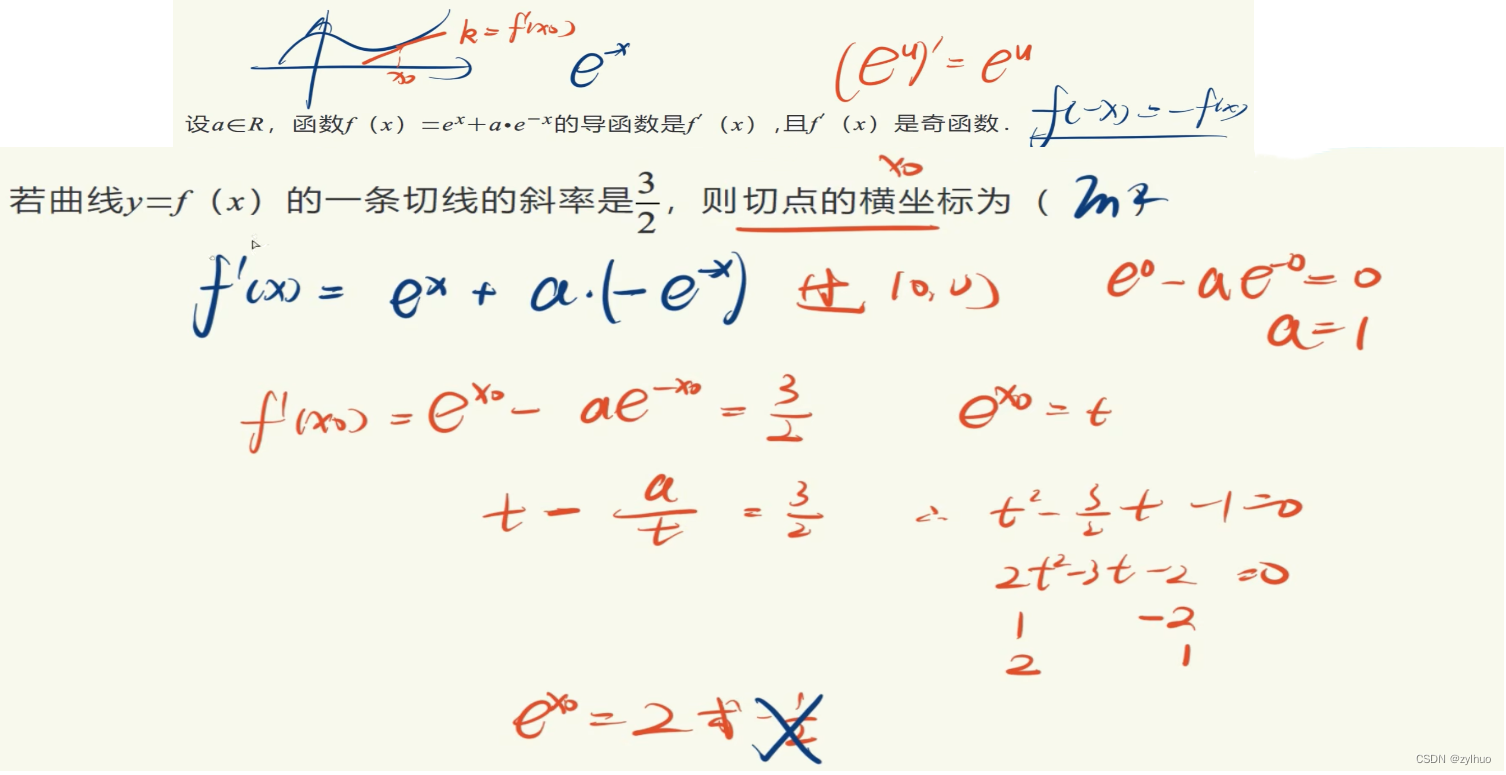 k = f'(x₀)
x₀
e⁻ˣ
(eᵘ)' = eᵘ
设a∈R，函数f（x）=eˣ+a•e⁻ˣ的导函数是f′（x）,且f′（x）是奇函数.
f(-x) = -f(x)
x₀
若曲线y=f（x）的一条切线的斜率是3/2，则切点的横坐标为（ ln2
f'(x) = eˣ + a·(-e⁻ˣ) 过 (0,0) e⁰ - ae⁻⁰ = 0
a = 1
f'(x₀) = eˣ⁰ - ae⁻ˣ⁰ = 3/2 eˣ⁰ = t
t - a/t = 3/2 ∴ t² - 3/2 t - 1 = 0
2t² - 3t - 2 = 0
1 -2
2 1
eˣ⁰ = 2 或 -1/2
CSDN @zylhuo